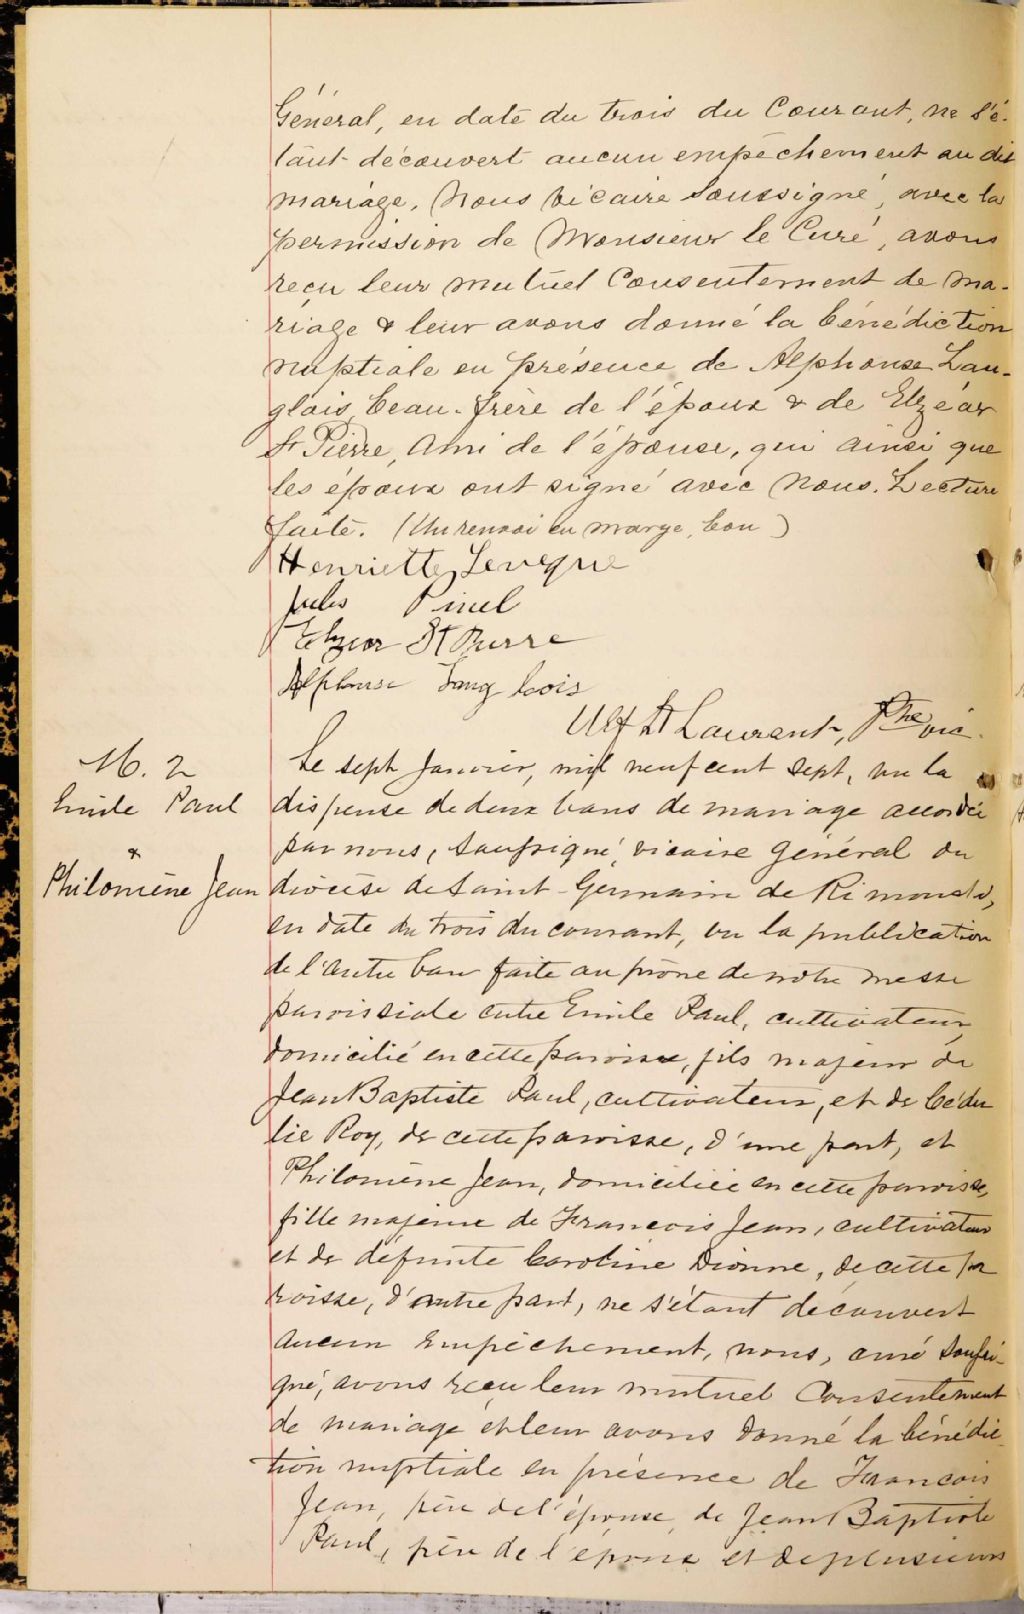 Général, en date du trois du Courant, ne s'é-
tant découvert aucun empêchement au dit
mariage, Nous Vicaire Soussigné, avec la
permission de Monsieur le Curé, avons
reçu leur mutuel Consentement de ma-
riage & leur avons donné la bénédiction
nuptiale en présence de Alphonse Lan-
glois, beau-frère de l'époux & de Elzéar
St Pierre, Ami de l'épouse, qui ainsi que
les époux ont signé avec Nous. Lecture
faite. (Un renvoi en marge, bon)
Henriette Leveque
Jules Pinel
Elzear St Pierre
Alphonse Lang lois
St Laurent, Ptre vic.
M. 2
Emile Paul
&
Philomène Jean
Le sept Janvier, mil neuf cent sept, vu la
dispense de deux bans de mariage accordée
par nous, soussigné, vicaire général du
diocèse de Saint-Germain de Rimouski,
en date du trois du courant, vu la publication
de l'autre ban faite au prône de notre messe
paroissiale entre Emile Paul, cultivateur,
domicilié en cette paroisse, fils majeur de
Jean Baptiste Paul, cultivateur, et de Cédu
lie Roy, de cette paroisse, d'une part, et
Philomène Jean, domiciliée en cette paroisse,
fille majeure de Francois Jean, cultivateur
et de défunte Caroline Dionne, de cette pa
roisse, d'autre part, ne s'étant découvert
aucun empêchement, nous, curé soussi-
gné, avons reçu leur mutuel Consentement
de mariage et leur avons donné la bénédic-
tion nuptiale en présence de Francois
Jean, père de l'épouse, de Jean Baptiste
Paul, père de l'époux et de plusieurs